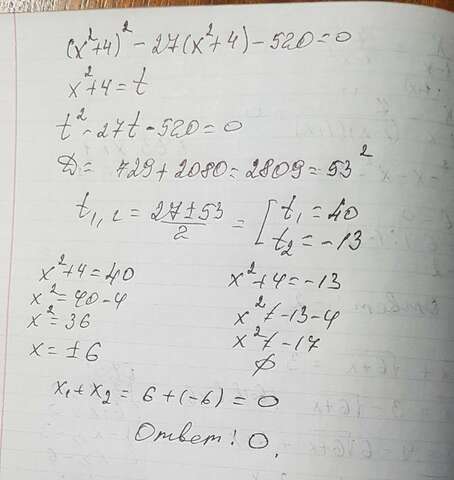 (x²+4)² - 27(x²+4) - 520 = 0
x²+4 = t
t² - 27t - 520 = 0
D = 729 + 2080 = 2809 = 53²
t₁,₂ = (27 ± 53)/2 = [ t₁ = 40
t₂ = -13
x²+4 = 40
x² = 40 - 4
x² = 36
x = ±6
x²+4 = -13
x² ≠ -13 - 4
x² ≠ -17
∅
x₁ + x₂ = 6 + (-6) = 0
Ответ! 0.